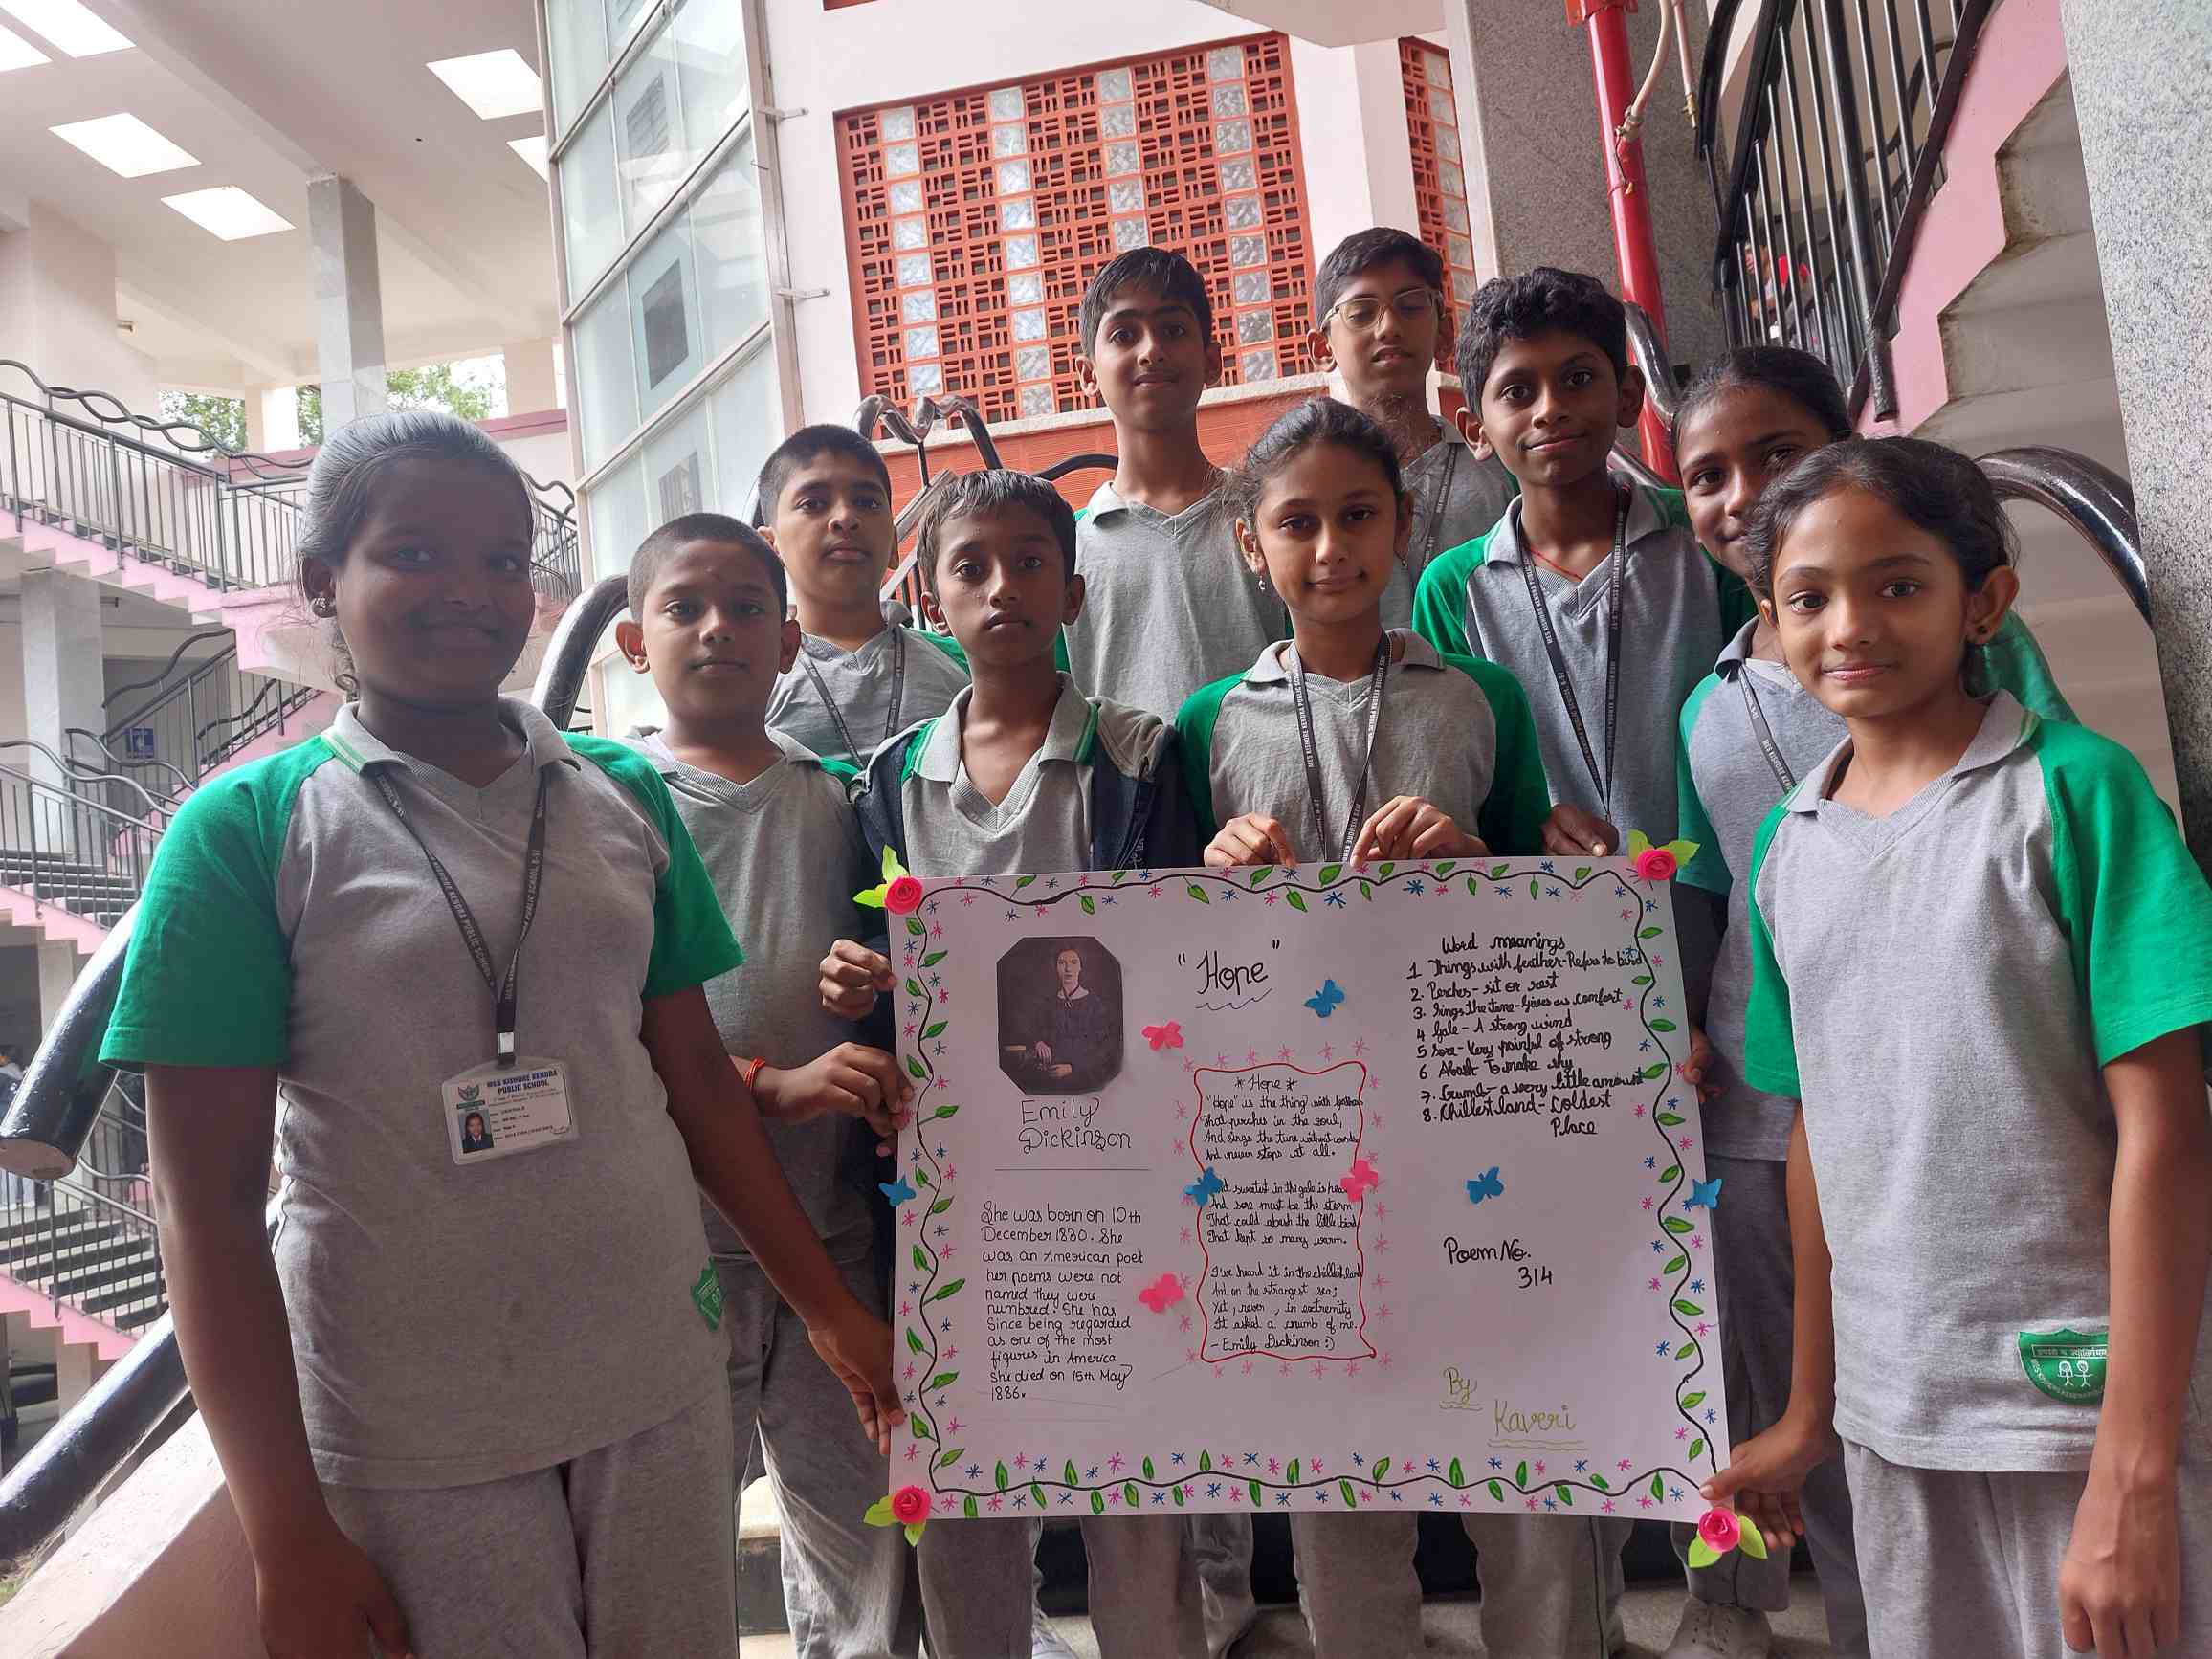 "Hope"
Emily
Dickinson
She was born on 10th
December 1830. She
was an American poet
her poems were not
named they were
numbred. She has
Since being regarded
as one of the most
figures in America
she died on 15th May
1886.
* Hope *
"Hope" is the thing with feathers
That perches in the soul,
And sings the tune without words
And never stops at all.
And sweetest in the gale is hea
And sore must be the storm
That could abash the little bird
That kept so many warm.
I've heard it in the chillest land
And on the strangest sea;
Yet, never, in extremity
It asked a crumb of me.
- Emily Dickinson :)
Word meanings
1 Things with feather- Refers to bird
2. Perches- sit or rest
3. Sings the tune- Gives us comfort
4 Gale - A strong wind
5 Sore- Very painful of strong
6 Abash To make shy
7. Crumb- a very little amount
8. Chillest land- Coldest
Place
Poem No.
314
By
Kaveri
MES KISHORE KENDRA
PUBLIC SCHOOL
MES KISHORE KENDRA PUBLIC SCHOOL, B-57